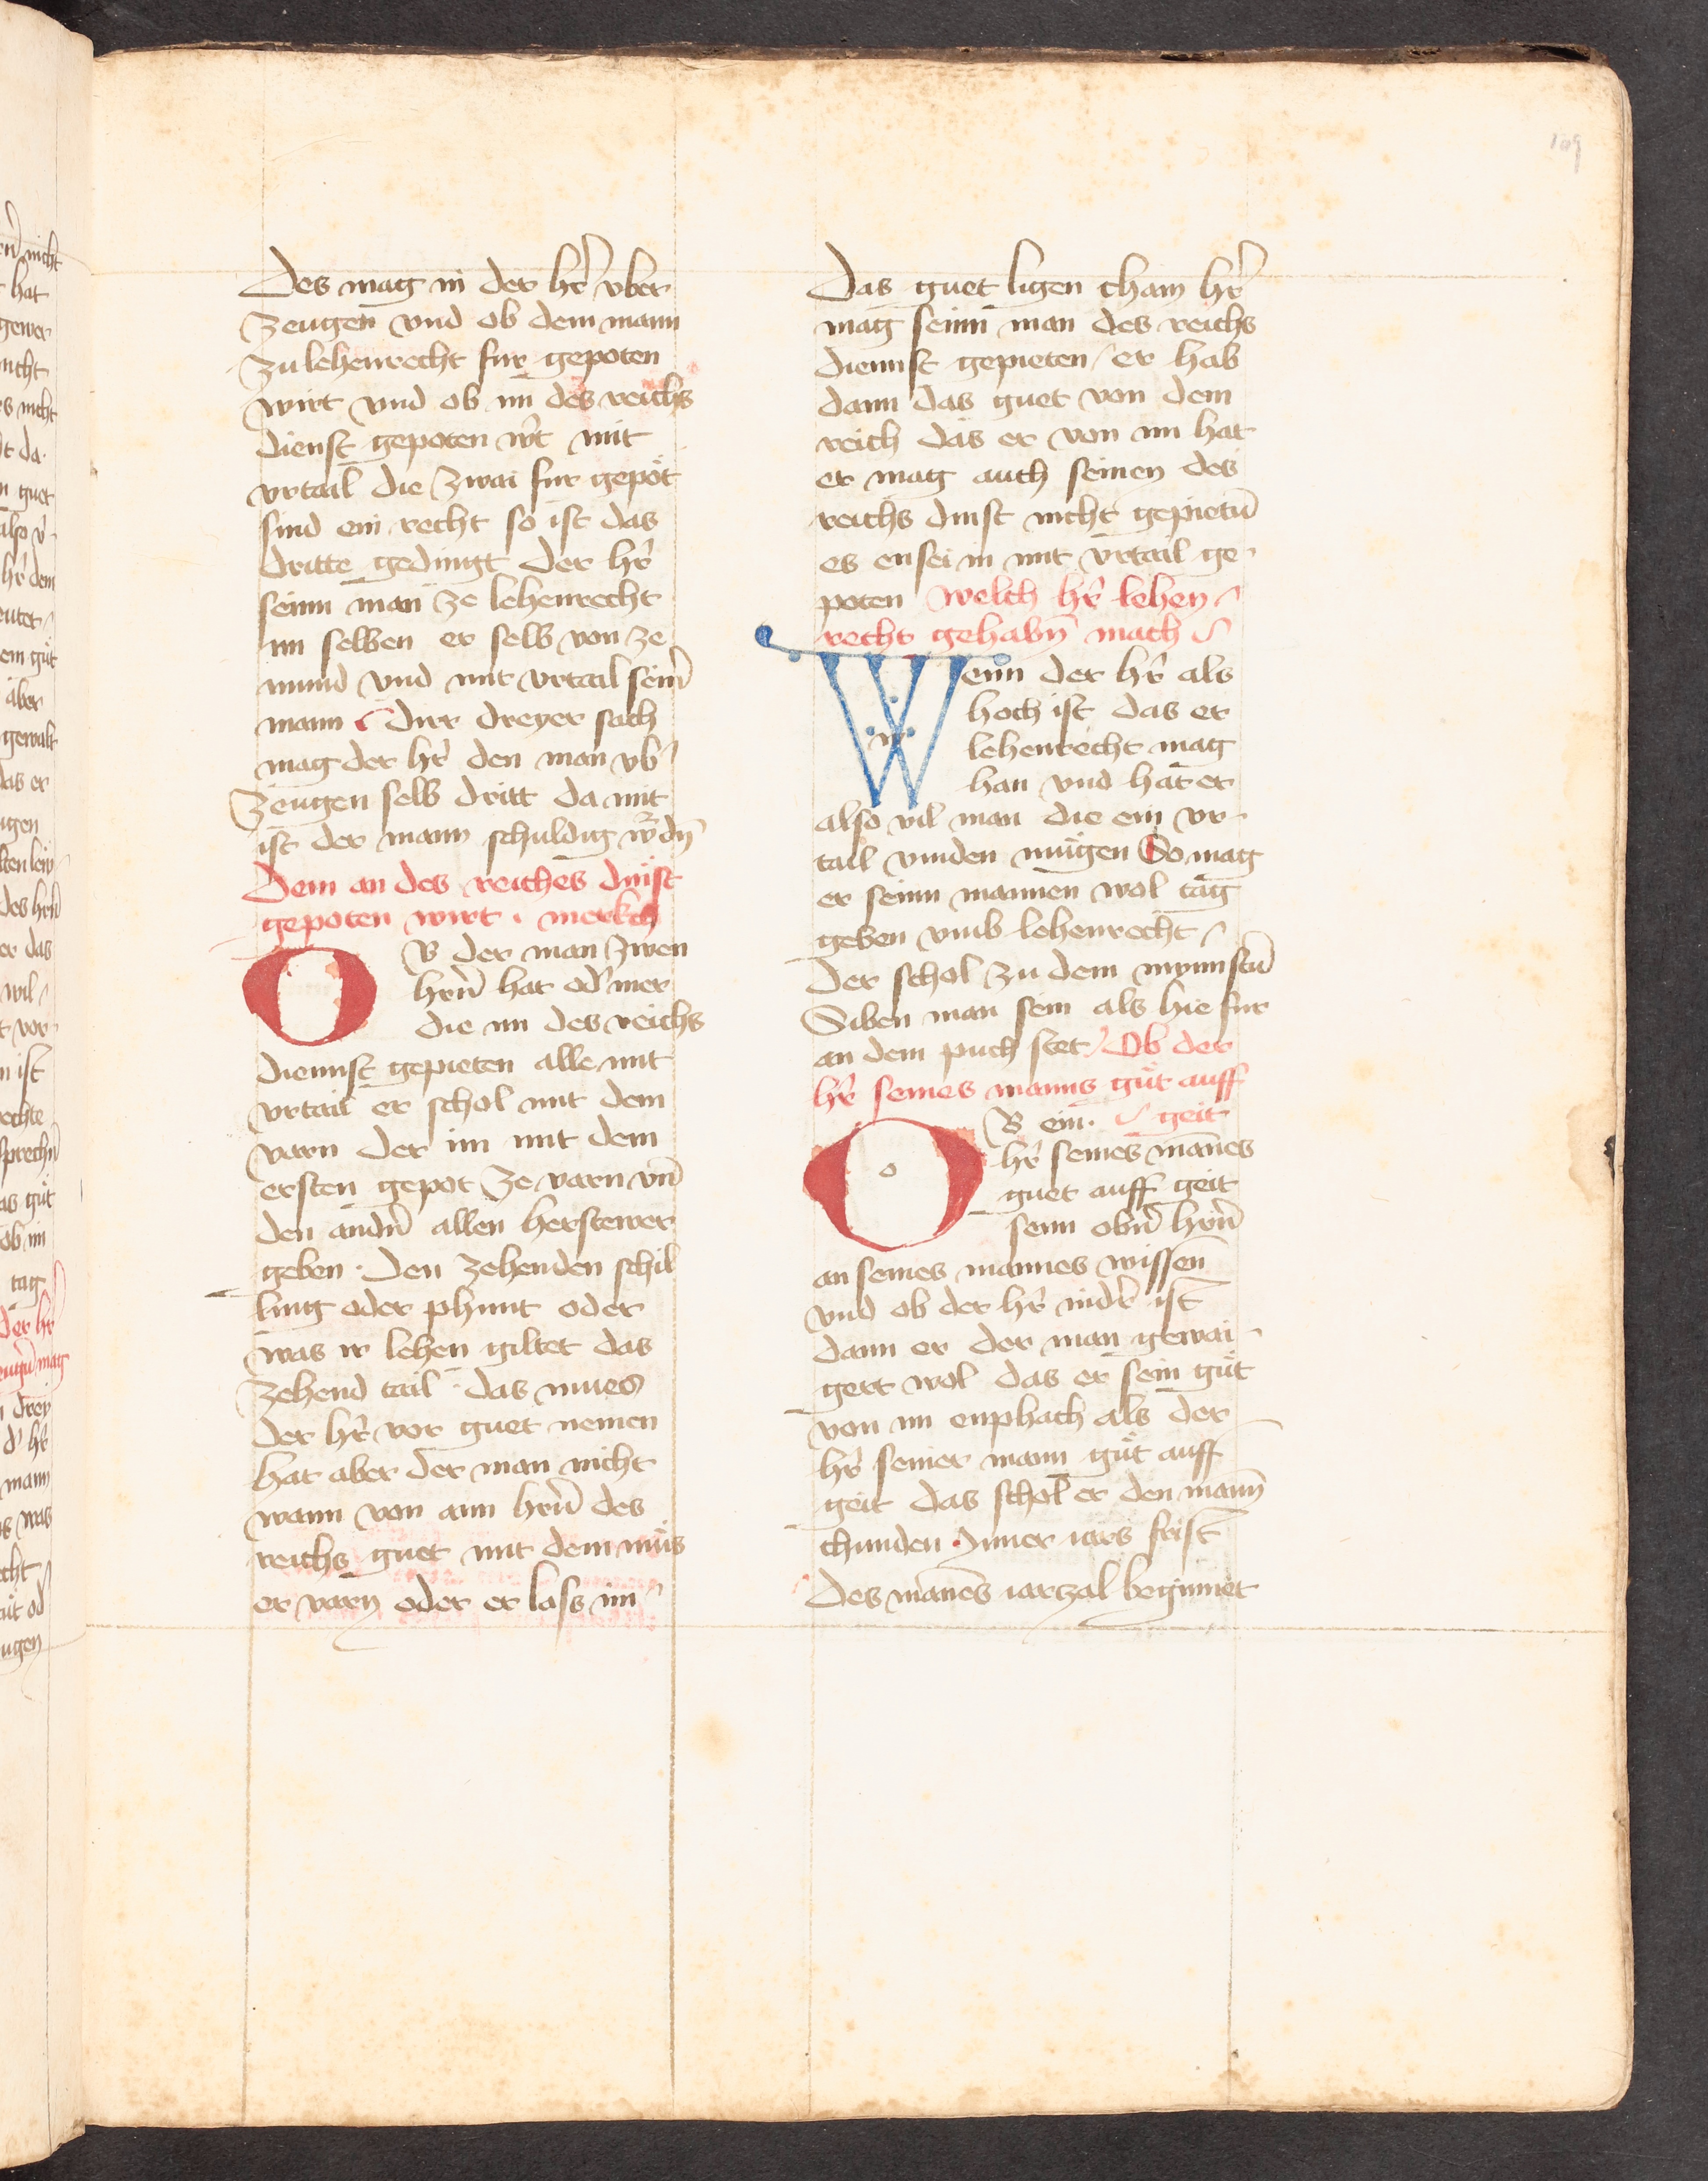 109
Des mag in der hr̄ vber
zeugen vnd ob dem mann
zu lehenrecht fur gepoten
wirt vnd ob im des reichs
dienst gepoten w't mit
vrtail die zwai fur gepöt
sind ein recht so ist das
dritte gedingt der hr̄
seinn man ze lehenrecht
im selben er selb von ze
mund vnd mit vrtail sein̄
mann Dirr dreyer sach
mag der hr̄ den man vb'
zeugen selb dritt da mit
ist der mann schuldig w'dn̄
Dem an des reiches dinst
gepoten wirt . merkch
OB der man zwen
hrn̄ hat od' mer
die im des reichs
diennst gepieten alle mit
vrtail er schol mit dem
varn der im mit dem
ersten gepot ze varn vn̄
den andn̄ allen herstewer
geben . Den zehenden schil
ling oder phunt oder
was ir lehen giltet das
zehend tail . das mues
der hr̄ vor guet nemen
hat aber der man nicht
wann von ainn hrn̄ des
reichs guet mit dem müs
er varn oder er lass im
Das guet ligen cham hr̄
mag seinn man des reichs
diennst gepieten / er hab
dann das guet von dem
reich das er von im hat
er mag auch seinen des
reichs dinst nicht gepietn̄
es ensei in mit vrtail ge
poten Welch hr̄ lehen
recht gehabn̄ mach
Wenn der hr̄ als
hoch ist das er
lehenrecht mag
han vnd hat er
also vil man die ein vr
tail vinden mügen So mag
er seinn mannen wol tag
geben vmb lehenrecht
Der schol zu dem mynnstn̄
Siben man sein als hie fur
an dem puch stet / Ob der
hr̄ seines manns güt auff
geit
OB ein.
hr̄ seines mannes
guet auff geit
seinn obn̄ hrn̄
an seines mannes wissen
vnd ob der hr̄ nidr̄ ist
dann er der man gewai
gert wol das er sein güt
von im enphach als der
hr̄ seiner mann güt auff
geit das schol er den mann
chunden . Inner iars frist
Des manes iarzal beginnet